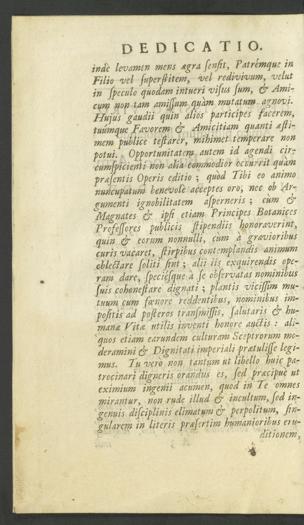 DEDICATIO.
inde levamen mens ægra sensit, Patrémque in
Filio vel superstitem, vel redivivum, velut
in speculo quodam intueri visus sum, & Ami-
cum non tam amissum quàm mutatum agnovi.
Hujus gaudii quin alios participes facerem,
tuumque Favorem & Amicitiam quanti æsti-
mem publice testarer, mihimet temperare non
potui. Opportunitatem autem id agendi cir-
cumspicienti non alia commodior occurrit quàm
præsentis Operis editio; quod Tibi eo animo
nuncupatum benevole acceptes oro, nec ob Ar-
gumenti ignobilitatem asperneris; cum &
Magnates & ipsi etiam Principes Botanices
Professores publicis stipendiis honoraverint,
quin & eorum nonnulli, cum à gravioribus
curis vacaret, stirpibus contemplandis animum
oblectare soliti sint; alii iis exquirendis ope-
ram dare, speciésque à se observatas nominibus
suis cohonestare dignati; plantis vicissim mu-
tuum cum fœnore reddentibus, nominibus im-
positis ad posteros transmissis. Salutaris & hu-
manæ Vitæ utilis inventi honore auctis: ali-
quos etiam earundem culturam Sceptrorum mo-
deramini & Dignitati imperiali prætulisse legi-
mus. Tu vero non tantum ut libello huic pa-
trocinari digneris orandus es, sed præcipue ut
eximium ingenii acumen, quod in Te omnes
mirantur, non rude illud & incultum, sed in-
genuis disciplinis elimatum & perpolitum, sin-
gularem in literis præsertim humanioribus eru-
ditionem,